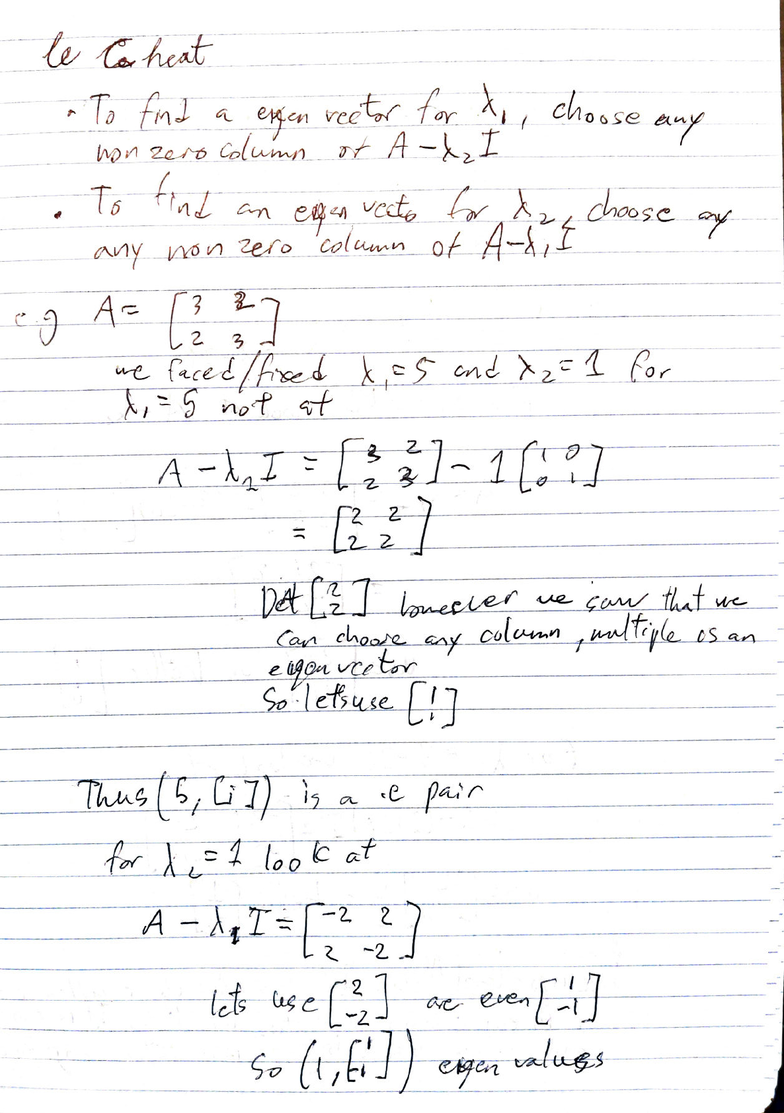 le Coheat
• To find a eigen vector for λ₁, choose any
non zero column of A-λ₂I
• To find an eigen vecto for λ₂, choose any
any non zero column of A-λ₁I
e.g A= [3 2; 2 3]
we faced/fixed λ₁=5 and λ₂=1 for
λ₁=5 not at
A-λ₂I = [3 2; 2 3] - 1 [1 0; 0 1]
= [2 2; 2 2]
[2; 2] however we saw that we
can choose any column, multiple as an
eigen vector
So lets use [1; 1]
Thus (5, [1; 1]) is a e pair
for λ₂=1 look at
A-λ₁I = [-2 2; 2 -2]
lets use [2; -2] are even [1; -1]
So (1, [1; -1]) eigen values